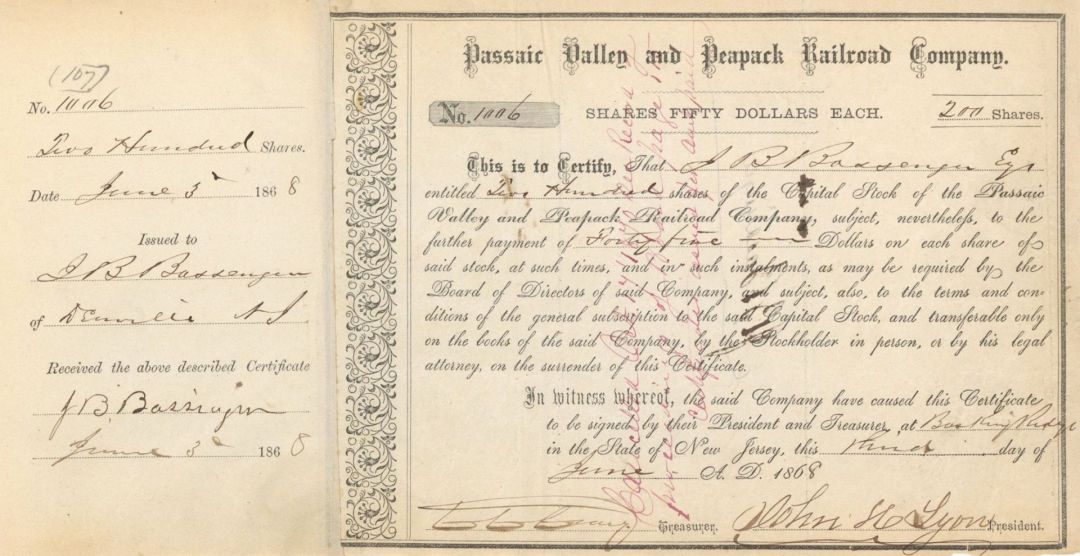 (107)
No. 1006
Two Hundred Shares.
Date June 3d 1868
Issued to
J B Bassenger
of Denville N J
Received the above described Certificate
J B Bassinger
June 3d 1868
Passaic Valley and Peapack Railroad Company.
No. 1006 SHARES FIFTY DOLLARS EACH. 200 Shares.
This is to Certify, That J B Bassenger Esq
entitled Two Hundred shares of the Capital Stock of the Passaic
Valley and Peapack Railroad Company, subject, nevertheless, to the
further payment of Forty five Dollars on each share of
said stock, at such times, and in such instalments, as may be required by the
Board of Directors of said Company, and subject, also, to the terms and con-
ditions of the general subscription to the said Capital Stock, and transferable only
on the books of the said Company, by the Stockholder in person, or by his legal
attorney, on the surrender of this Certificate.
In witness whereof, the said Company have caused this Certificate
to be signed by their President and Treasurer, at Basking Ridge
in the State of New Jersey, this third day of
June A. D. 1868
Treasurer. John H Lyon President.
Cancelled